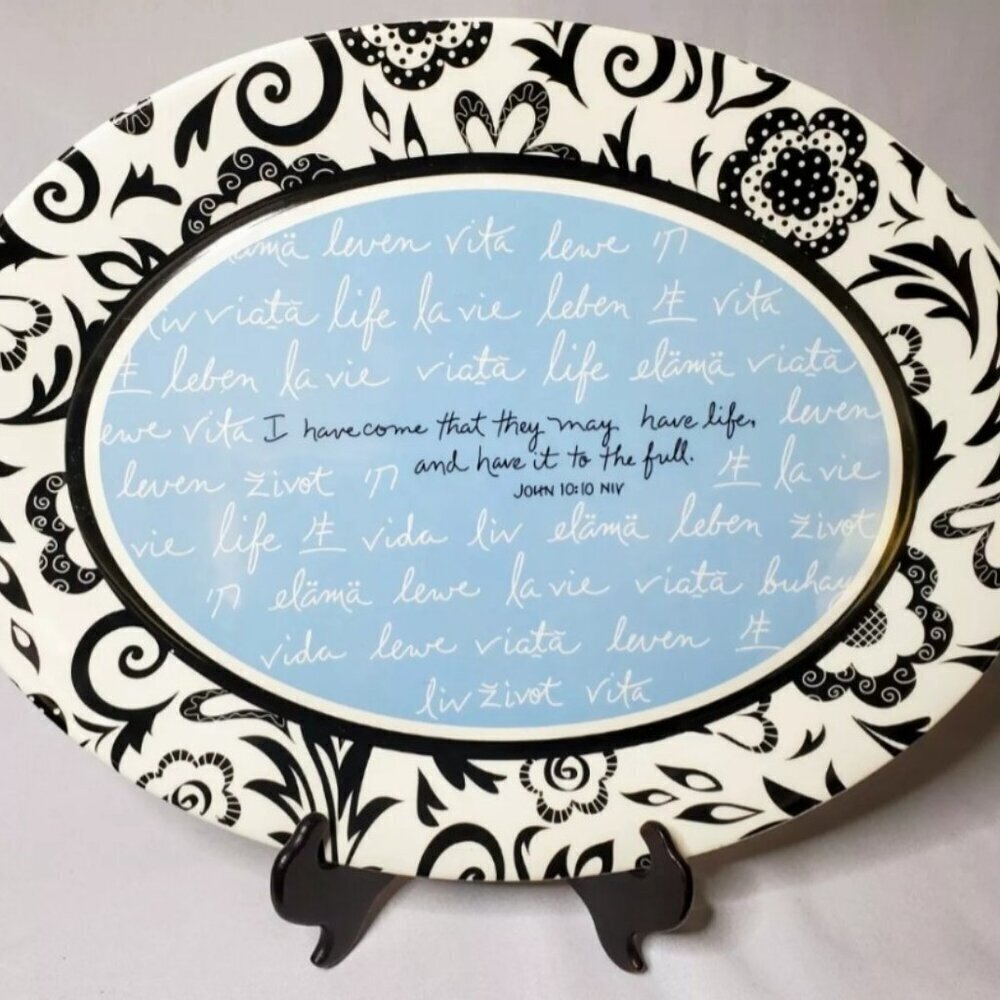 elämä leven vita lewe חי
liv viaţă life la vie leben 生 vita
生 leben la vie viaţă life elämä viaţă
lewe vita I have come that they may have life, leven
leven život חי and have it to the full. 生 la vie
JOHN 10:10 NIV
vie life 生 vida liv elämä leben život
חי elämä lewe la vie viaţă buhay
vida lewe viaţă leven 生
liv život vita